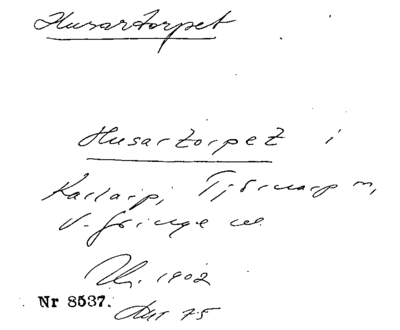 Husartorpet
Husartorpet i
Karlarp, Tjörnarp m,
V. Göinge
1902
Nr 8537.
75